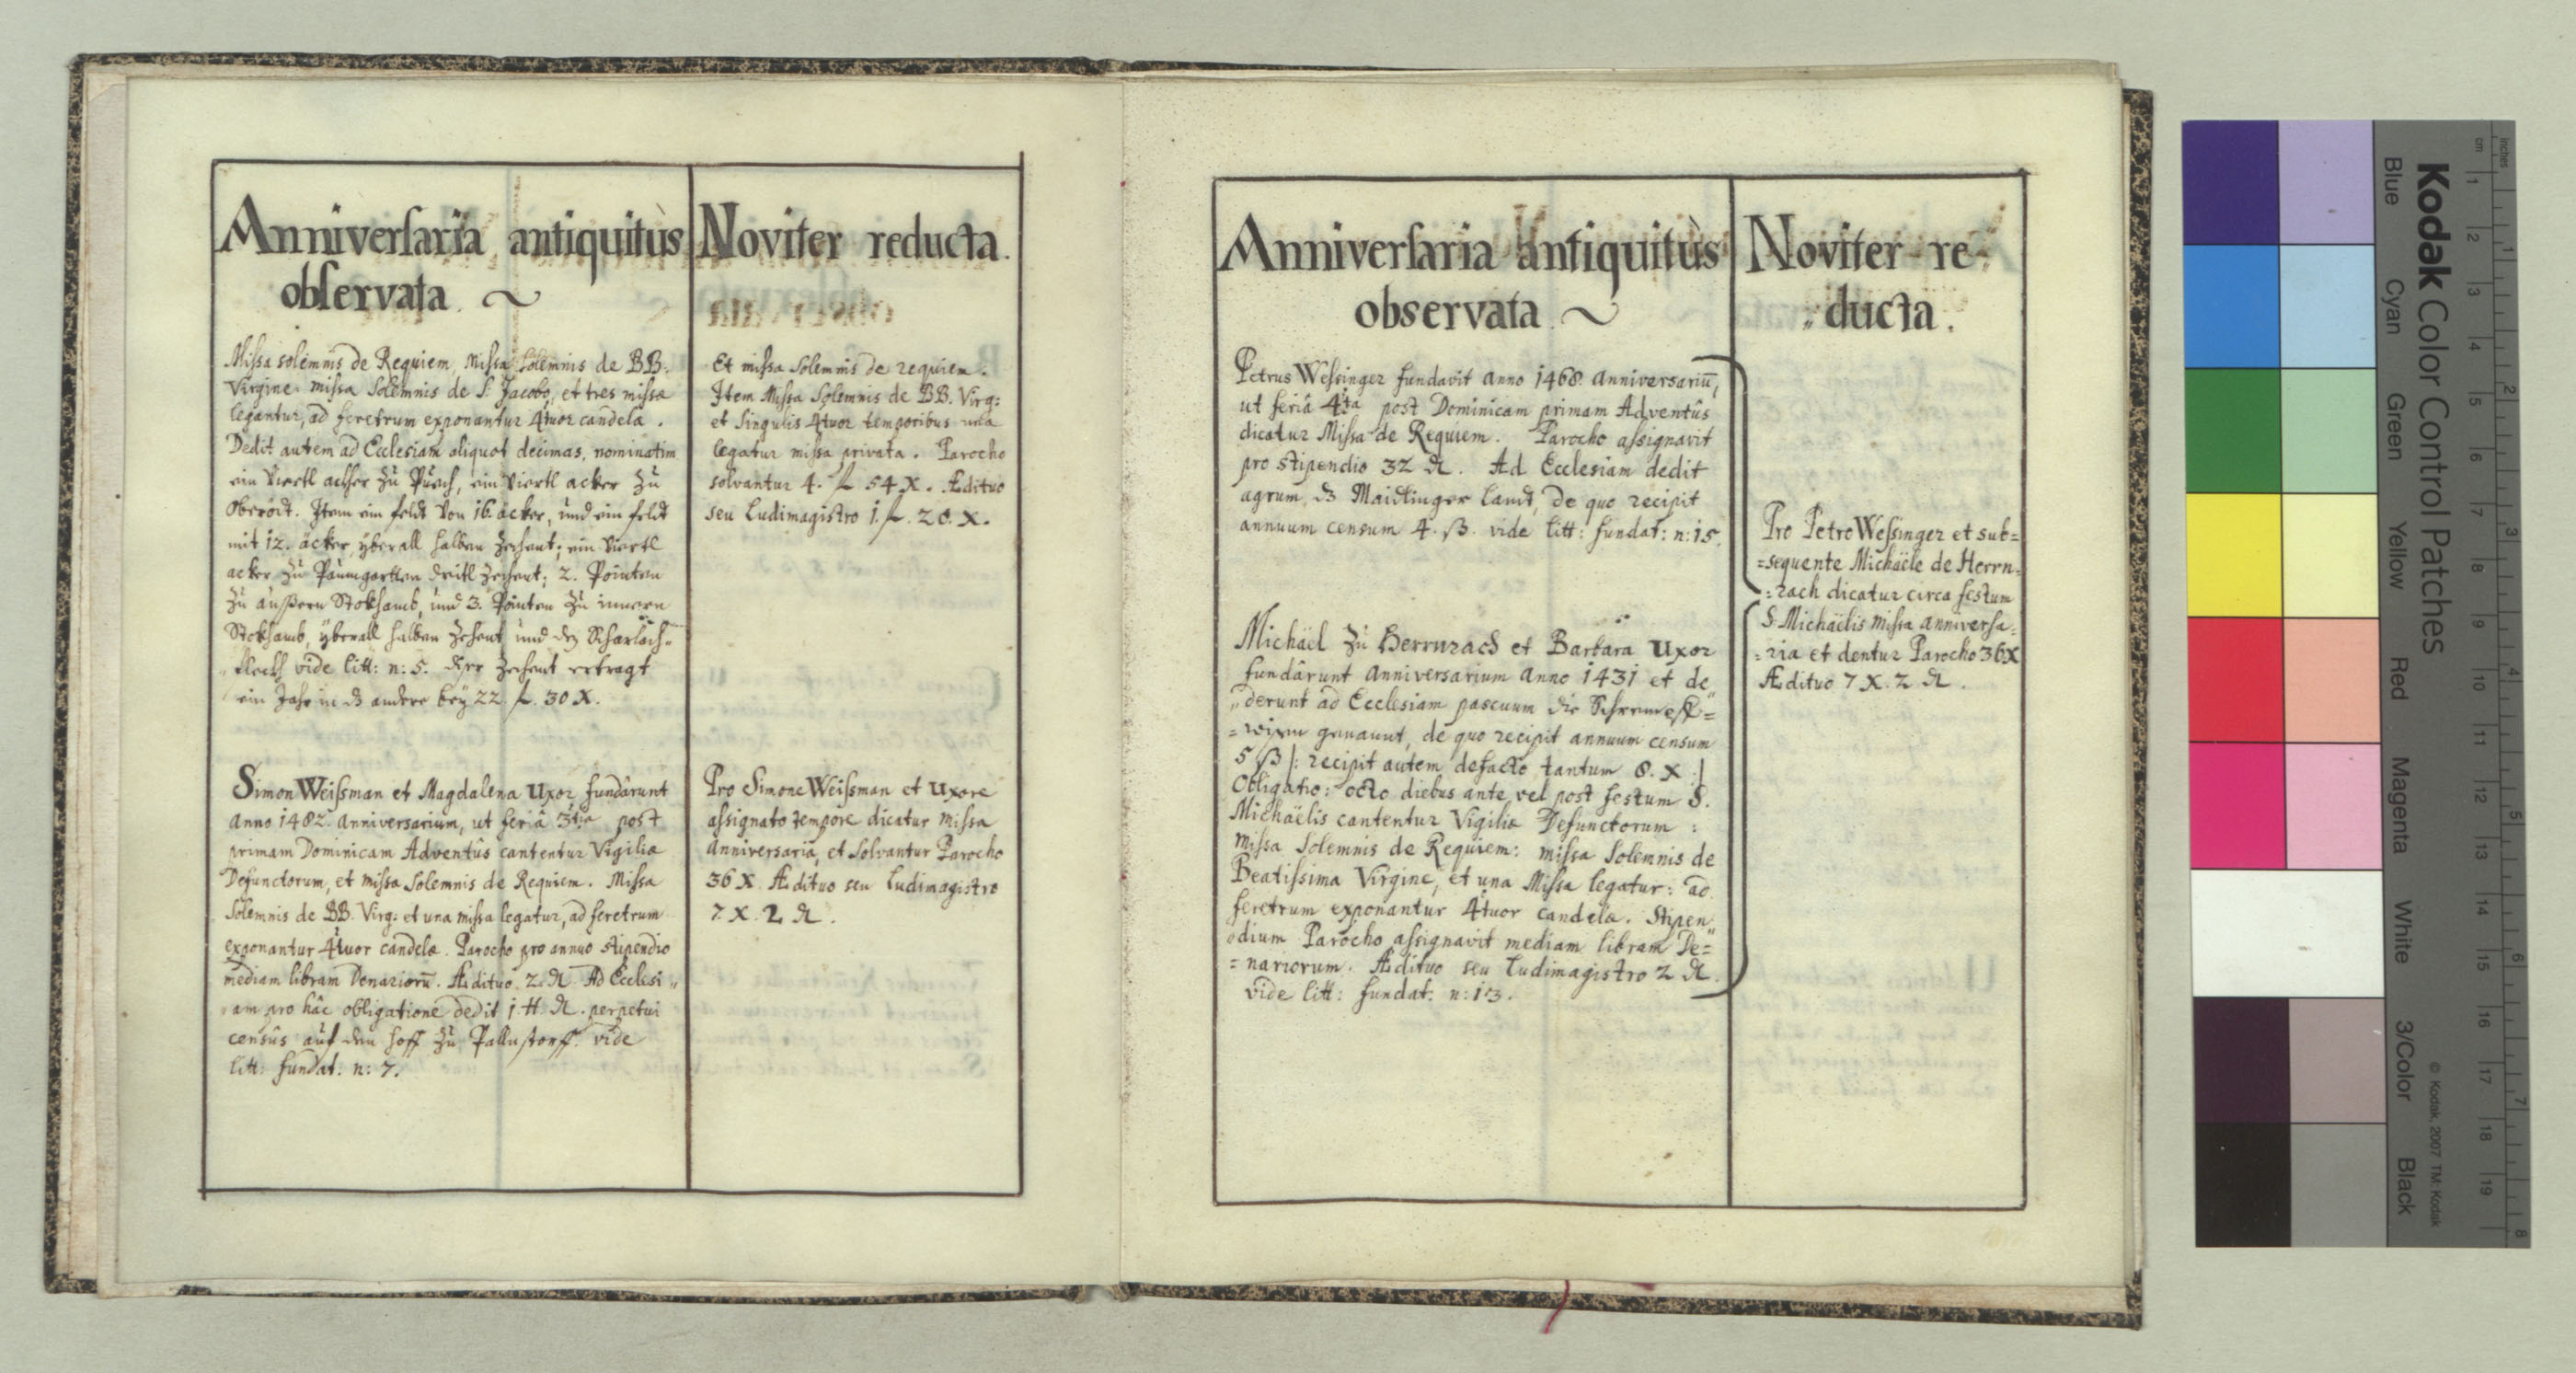 Anniversaria antiquitùs
observata. ~
Missa solemnis de Requiem, Missa Solemnis de BB:
Virgine. missa Solemnis de S: Jacobo, et tres missæ
legantur, ad feretrum exponantur 4tuor candelæ.
Dedit autem ad Ecclesiam aliquot decimas, nominatim
ein Viertl ackher zu Puech, ein Viertl acker zu
Oberödt. Item ein feldt von 16. äcker, und ein feldt
mit 12. äcker, yberall halben Zechent; ein Viertl
acker zu Paumgartten dritl Zechent; 2. Pointen
zu aussern Stokhamb, und 3. Pointen zu innern
Stokhamb, yberall halben Zehent und den Scharlach-
vide litt: n: 5. Zechent ertragt
ein Jahr in ds andere bey 22 f. 30 X.
Simon Weissman et Magdalena Uxor fundârunt
Anno 1482. anniversarium, ut feriâ 3tia post
primam Dominicam Adventûs cantentur Vigiliæ
Defunctorum, et missa Solemnis de Requiem. Missa
Solemnis de BB. Virg: et una missa legatur, ad feretrum
exponantur 4tuor candelæ. Parocho pro annuo stipendio
mediam libram Denariorū. Ædituo 2. ₰. Ad Ecclesi„
„am pro hâc obligatione dedit 1. ℔. ₰. perpetui
censûs auf den hoff zu Pallnstorff. vide
litt: fundat: n: 7.
Noviter reducta.
Et missa Solemnis de requiem.
Item Missa Solemnis de BB. Virg:
et Singulis 4tuor temporibus una
legatur missa privata. Parocho
solvantur 4. f 54 X. Ædituo
seu Ludimagistro 1. f. 20. X.
Pro Simone Weissman et Uxore
assignato tempore dicatur missa
Anniversaria, et Solvantur Parocho
36 X. Ædituo seu Ludimagistro
7. X. 2 ₰.
Anniversaria antiquitùs
observata. ~
Petrus Wessinger fundavit Anno 1468. anniversariū,
ut feriâ 4ta post Dominicam primam Adventûs
dicatur Missa de Requiem. Parocho assignavit
pro stipendio 32 ₰. Ad Ecclesiam dedit
agrum, ds Maidlinger Landt, de quo recipit
annuum censum 4. ß. vide litt: fundat: n: 15.
Michäel zu Herrnrach et Barbara Uxor
fundârunt Anniversarium Anno 1431 et de„
„derunt ad Ecclesiam pascuum die
=wisen genannt, de quo recipit annuum censum
5 ß |: recipit autem defacto tantum 8. X :|
Obligatio: octo diebus ante vel post festum S.
Michäelis cantentur Vigiliæ Defunctorum:
missa Solemnis de Requiem: missa Solemnis de
Beatissima Virgine, et una Missa legatur: ad
feretrum exponantur 4tuor candelæ. Stipen„
„dium Parocho assignavit mediam libram De=
=nariorum. Ædituo seu Ludimagistro 2 ₰.
vide litt: fundat: n: 13.
Noviter re-
„ducta.
Pro Petro Wessinger et sub=
=sequente Michäele de Herrn=
=rach dicatur circa festum
S: Michäelis missa anniversa=
=ria et dentur Parocho 36 X
Ædituo 7 X. 2 ₰.
Kodak Color Control Patches
Blue Cyan Green Yellow Red Magenta White 3/Color Black
© Kodak, 2007 TM: Kodak
cm 1 2 3 4 5 6 7 8 9 10 11 12 13 14 15 16 17 18 19
inches 1 2 3 4 5 6 7 8